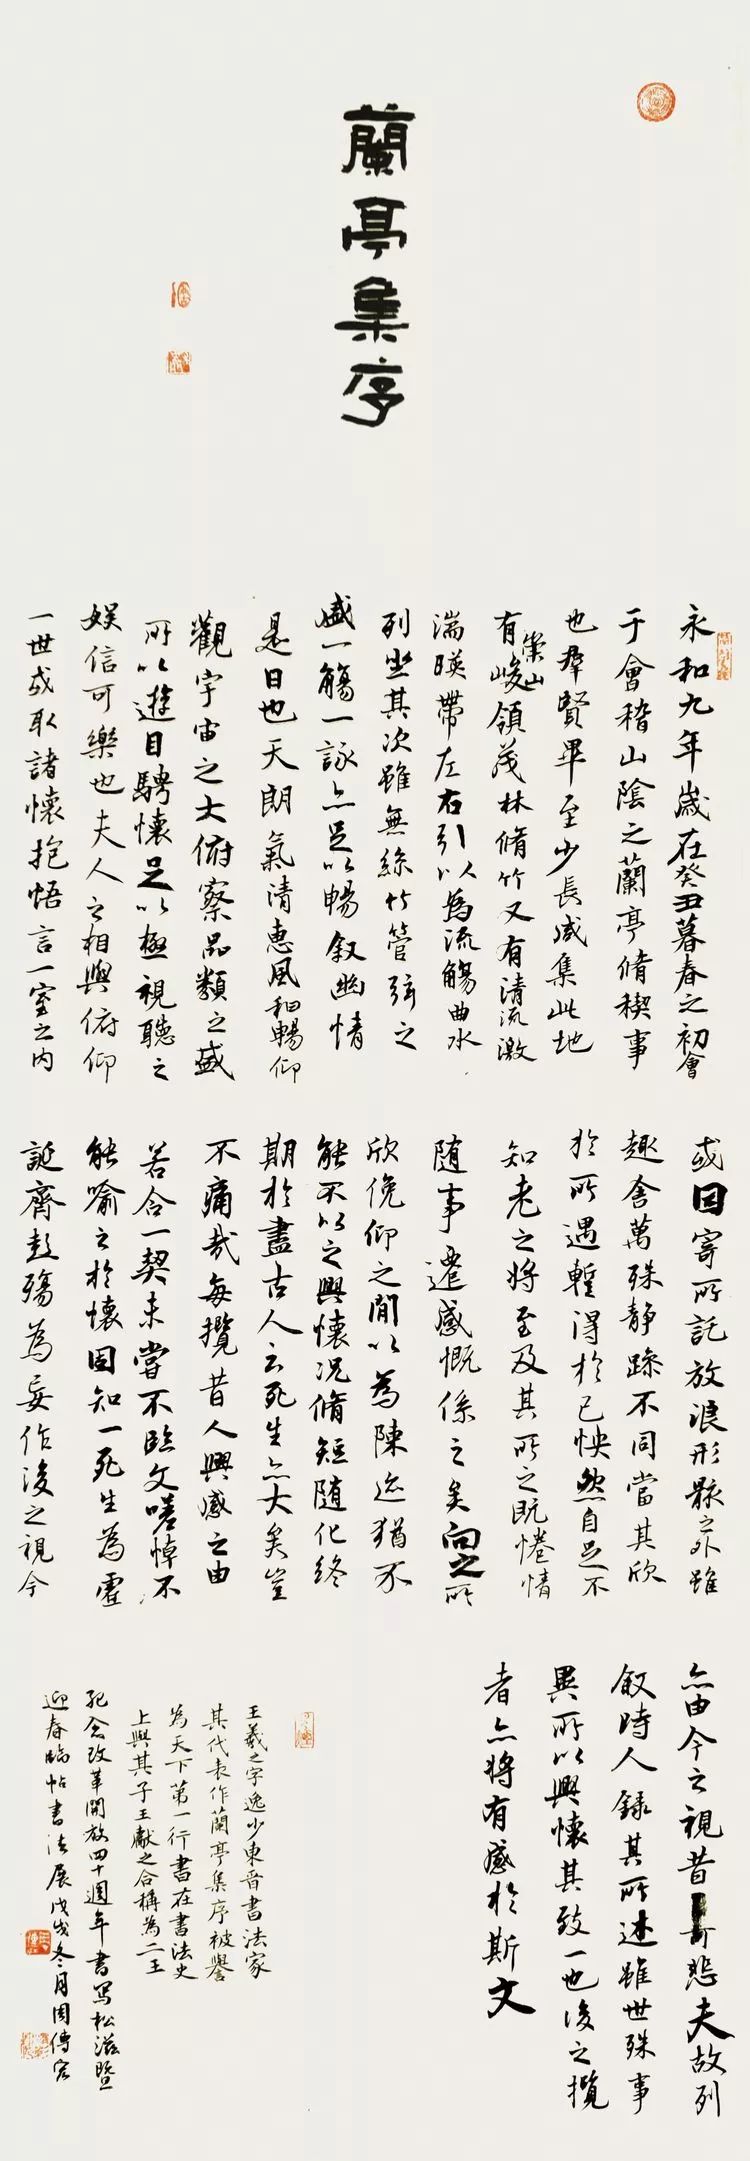 蘭亭集序
永和九年歲在癸丑暮春之初會
于會稽山陰之蘭亭脩稧事
也羣賢畢至少長咸集此地
有崇山峻領茂林脩竹又有清流激
湍暎帶左右引以為流觴曲水
列坐其次雖無絲竹管弦之
盛一觴一詠亦足以暢叙幽情
是日也天朗氣清惠風和暢仰
觀宇宙之大俯察品類之盛
所以遊目騁懷足以極視聽之
娛信可樂也夫人之相與俯仰
一世或取諸懷抱悟言一室之內
或因寄所託放浪形骸之外雖
趣舍萬殊静躁不同當其欣
於所遇暫得於己怏然自足不
知老之將至及其所之既惓情
隨事遷感慨係之矣向之所
欣俛仰之間以為陳迹猶不
能不以之興懷况脩短隨化終
期於盡古人云死生亦大矣豈
不痛哉每攬昔人興感之由
若合一契未嘗不臨文嗟悼不
能喻之於懷固知一死生為虛
誕齊彭殤為妄作後之視今
亦由今之視昔悲夫故列
叙時人錄其所述雖世殊事
異所以興懷其致一也後之攬
者亦將有感於斯文
王羲之字逸少東晉書法家
其代表作蘭亭集序被譽
為天下第一行書在書法史
上與其子王獻之合稱為二王
紀念改革開放四十週年書寫松滋暨
迎春臨帖書法展戊戌冬月周傳宏